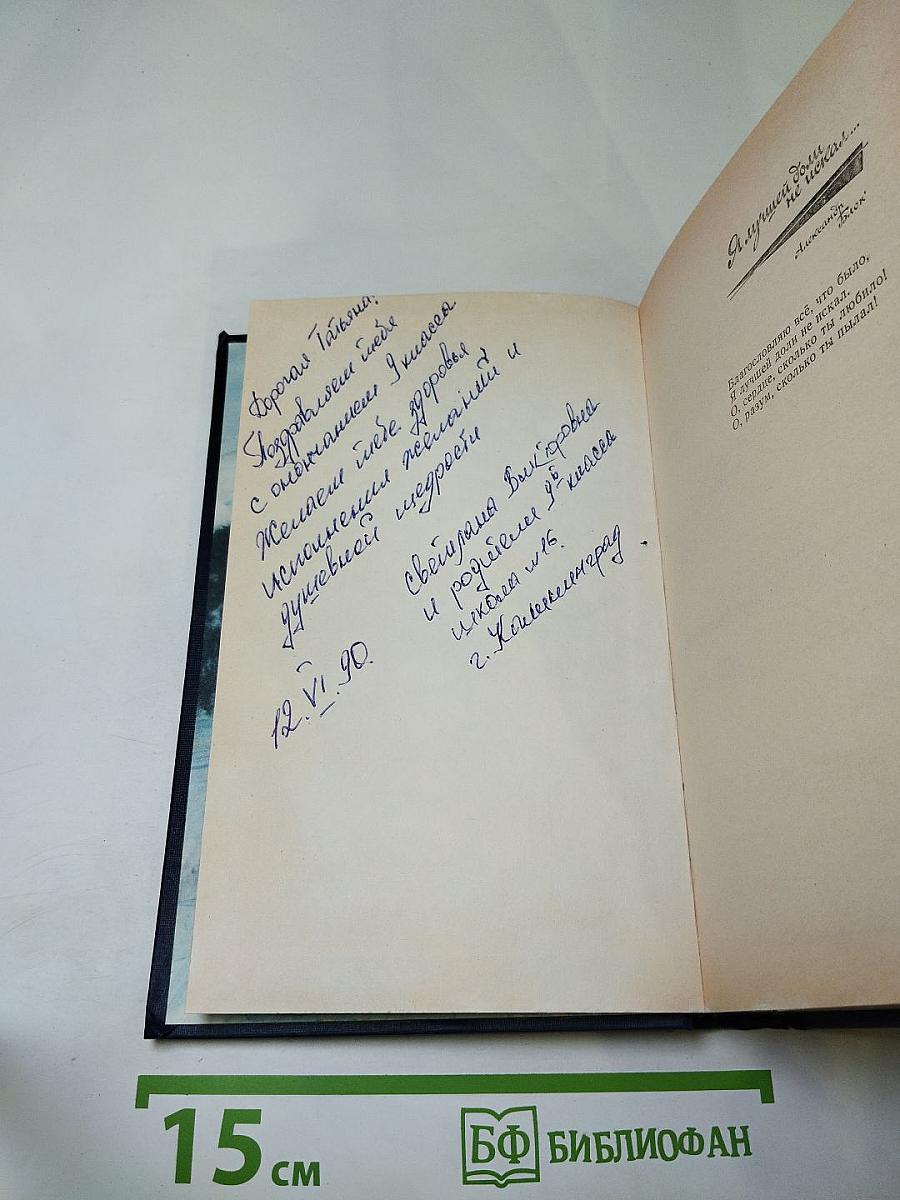 Дорогая Татьяна!
Поздравляем тебя
с окончанием 9 класса
Желаем тебе здоровья
исполнения желаний и
душевной щедрости
Светлана Викторовна
и родители 9б класса
школа №16.
г. Калининград
12.VI.90.
Я лучшей доли
не искал...
Александр
Блок
Благословляю всё, что было,
Я лучшей доли не искал.
О, сердце, сколько ты любило!
О, разум, сколько ты пылал!
15 см
БФ БИБЛИОФАН